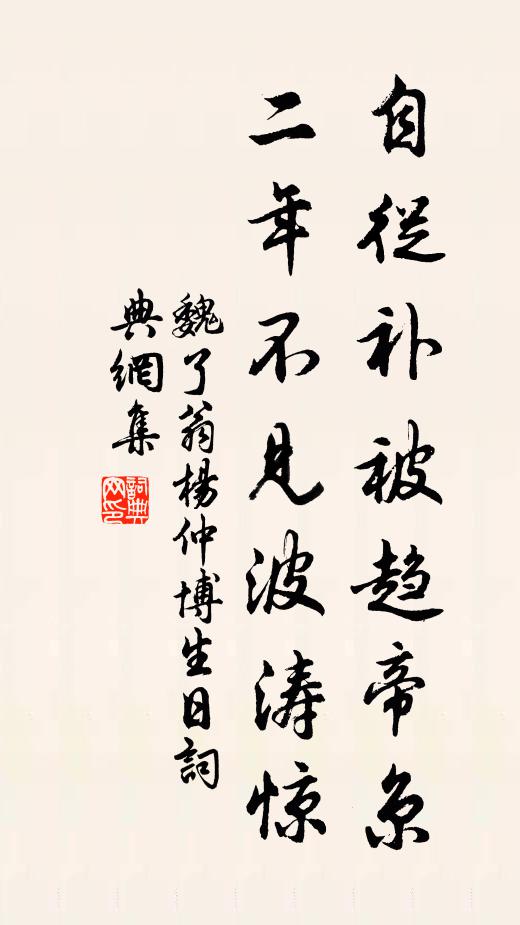 自從补被趋帝京
二年不见波涛惊
魏了翁楊仲博生日詞
典網集
詞典网印